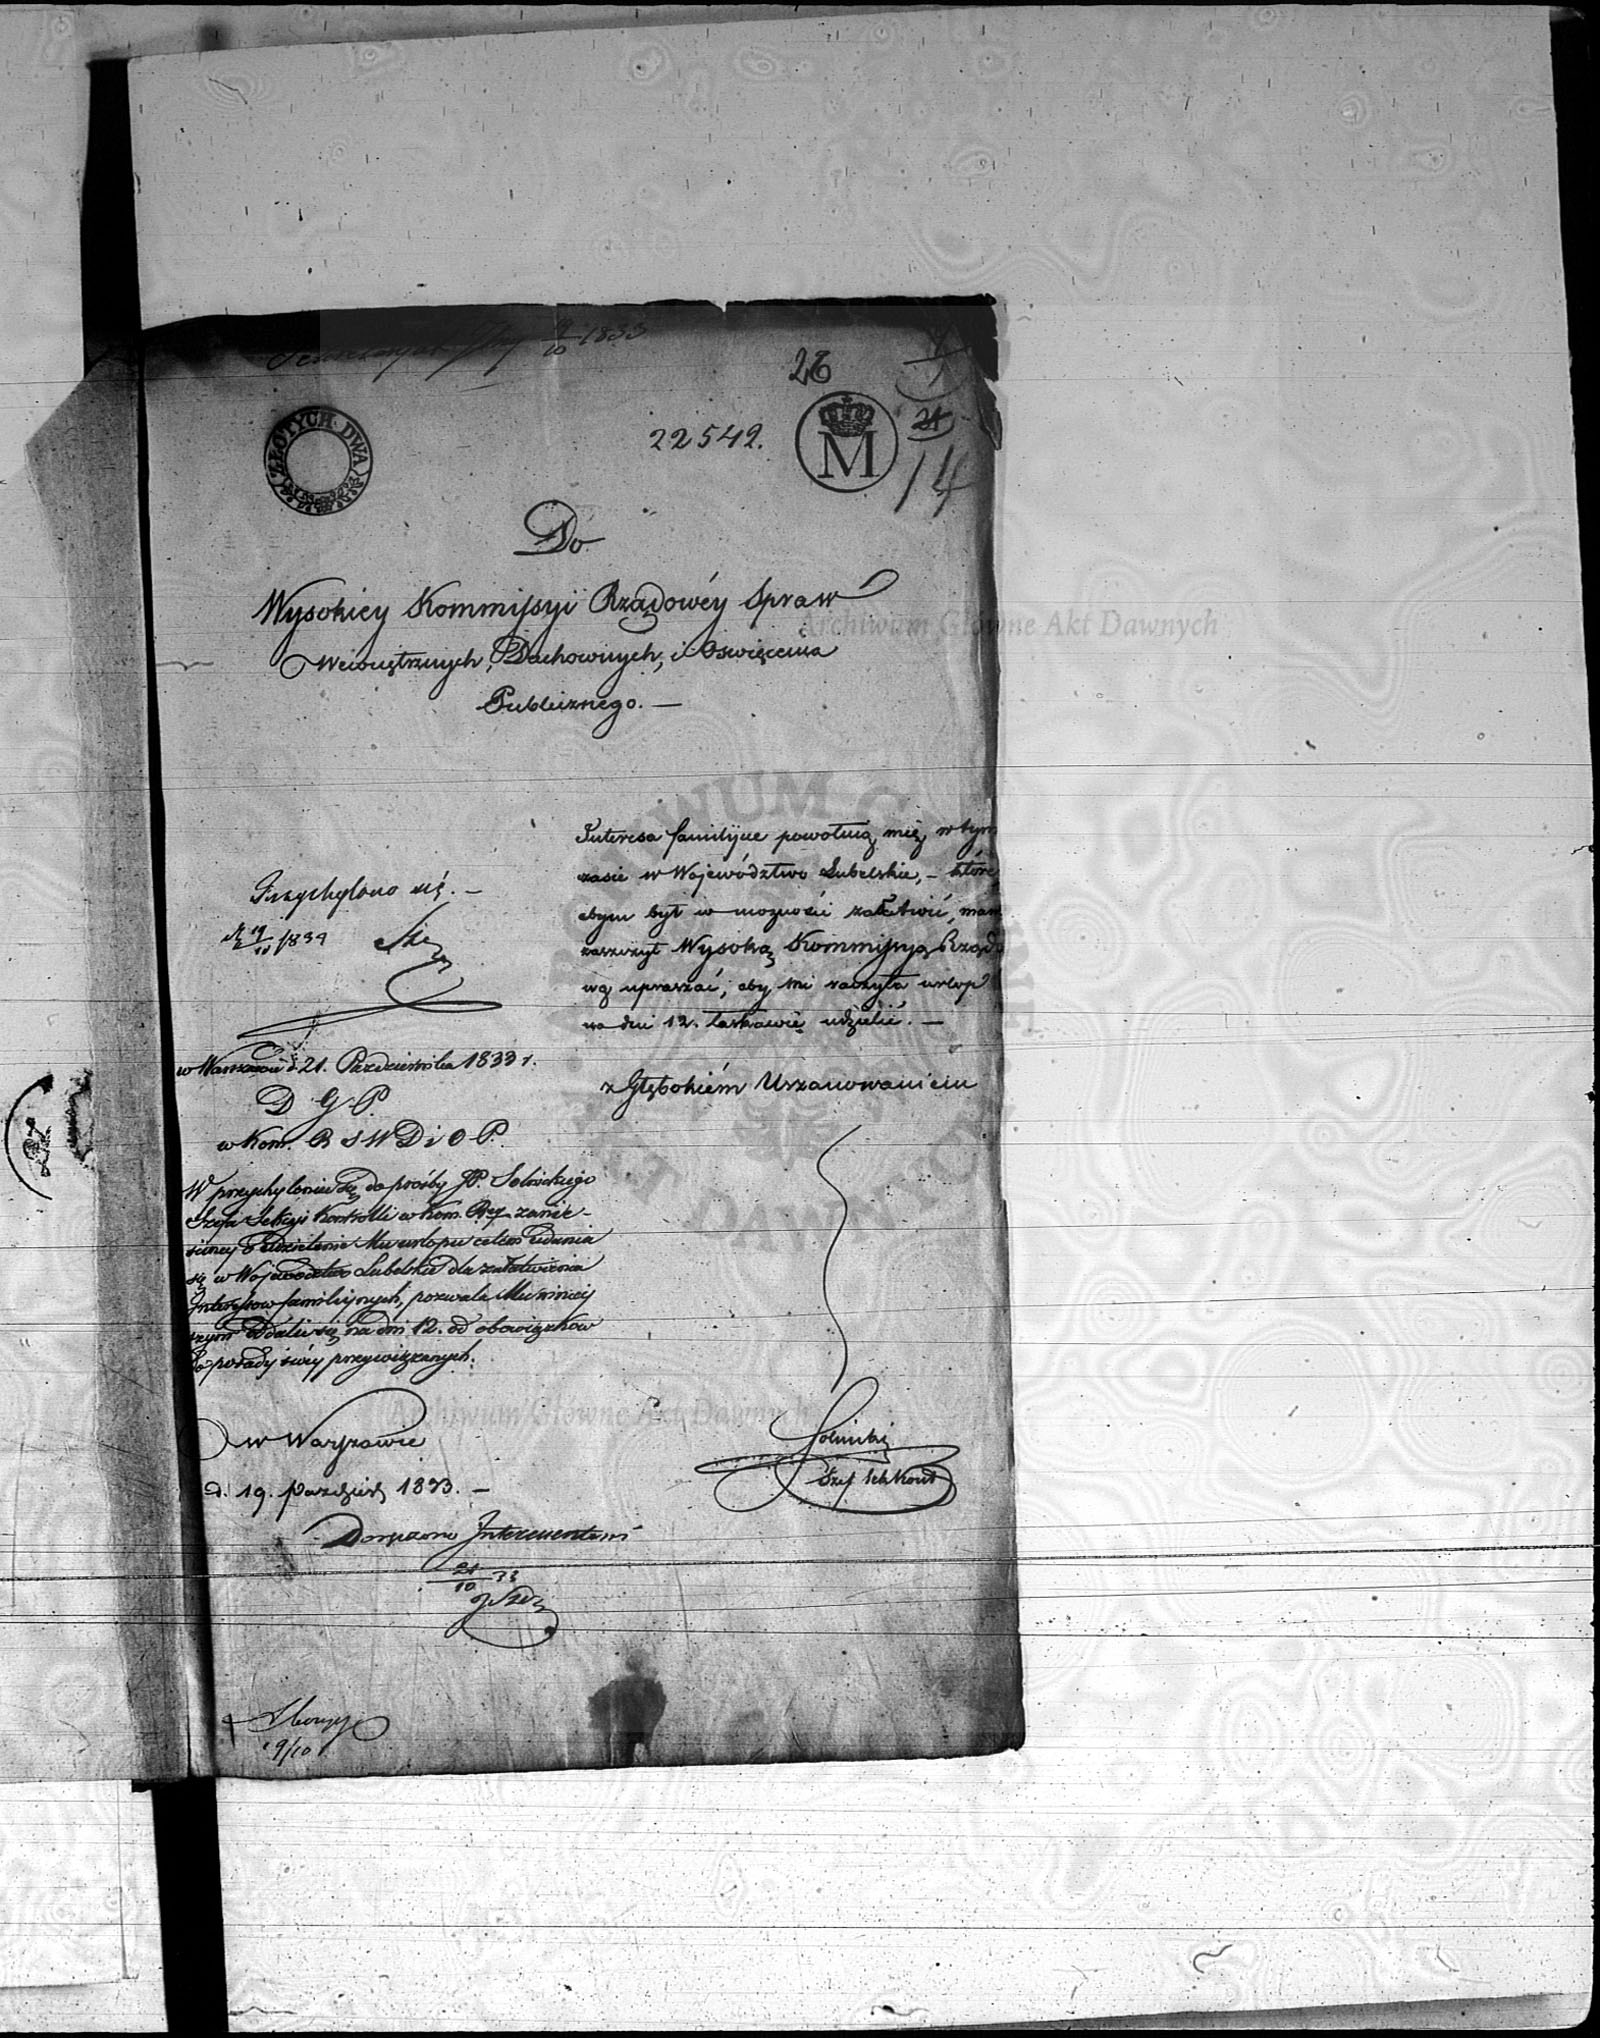 19/10 1833
26
22542.
ZŁOTYCH DWA
M
21
14
Do
Wysokiey Kommissyi Rządowéy Spraw
Wewnętrznych, Duchownych, i Oswięcenia
Publicznego. —
Interesa familijne powołują mię w tym
czasie w Województwo Lubelskie, — które
abym był w mozności załatwić, mam
zaszczyt Wysoką Kommissyą Rządo
wą upraszać, aby mi raczyła urlop
na dni 12. łaskawie udzielić. —
z Głębokiém Uszanowaniem
Przychylono się. —
19/10 1833
w Warszawie d. 21. Pazdziernika 1833 r.
D G P.
w Kom. R S W D i O P.
W przychyleniu się do prośby JP. Solnickiego
Szefa Sekcyi Kontrolli w Kom. Rzą. zanie-
sioney o udzielenie Mu urlopu celem udania
się w Województwo Lubelskie dla załatwienia
Interessow familijnych, pozwala Mu niniey
szym oddalić się na dni 12. od obowiązkow
do posady swéy przywiązanych.
w Warszawie
d. 19. Pazdzier 1833. —
Solnicki
Szef Sek Kont
Doręczono Interessentowi
21/10 33
19/10
Archiwum Główne Akt Dawnych
Archiwum Główne Akt Dawnych
ARCHIWUM GŁÓWNE AKT DAWNYCH